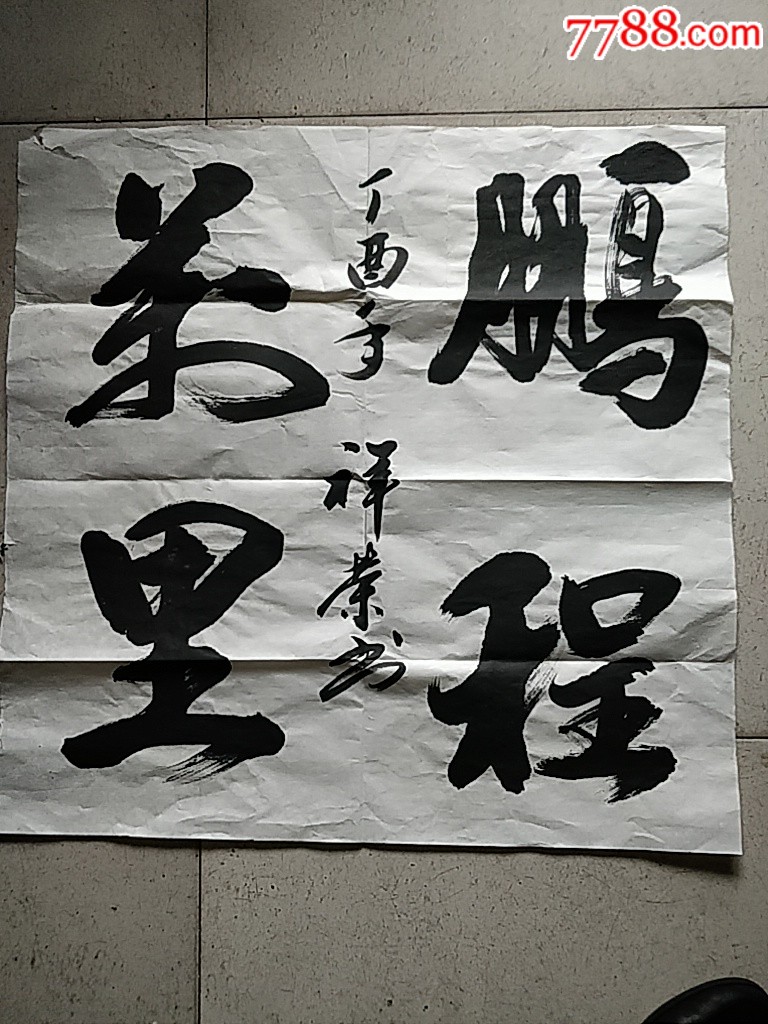 7788.com
鵬程
萬里
丁酉年
祥荣书